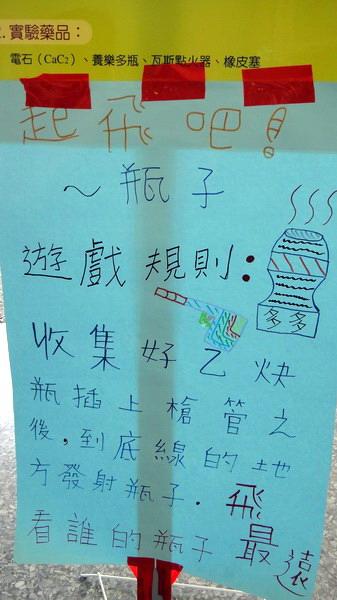 . 實驗藥品：
電石（CaC2）、養樂多瓶、瓦斯點火器、橡皮塞
起飛吧！
～瓶子
遊戲規則：
多多
收集好乙炔
瓶插上槍管之
後，到底線的地
方發射瓶子．飛
看誰的瓶子最遠